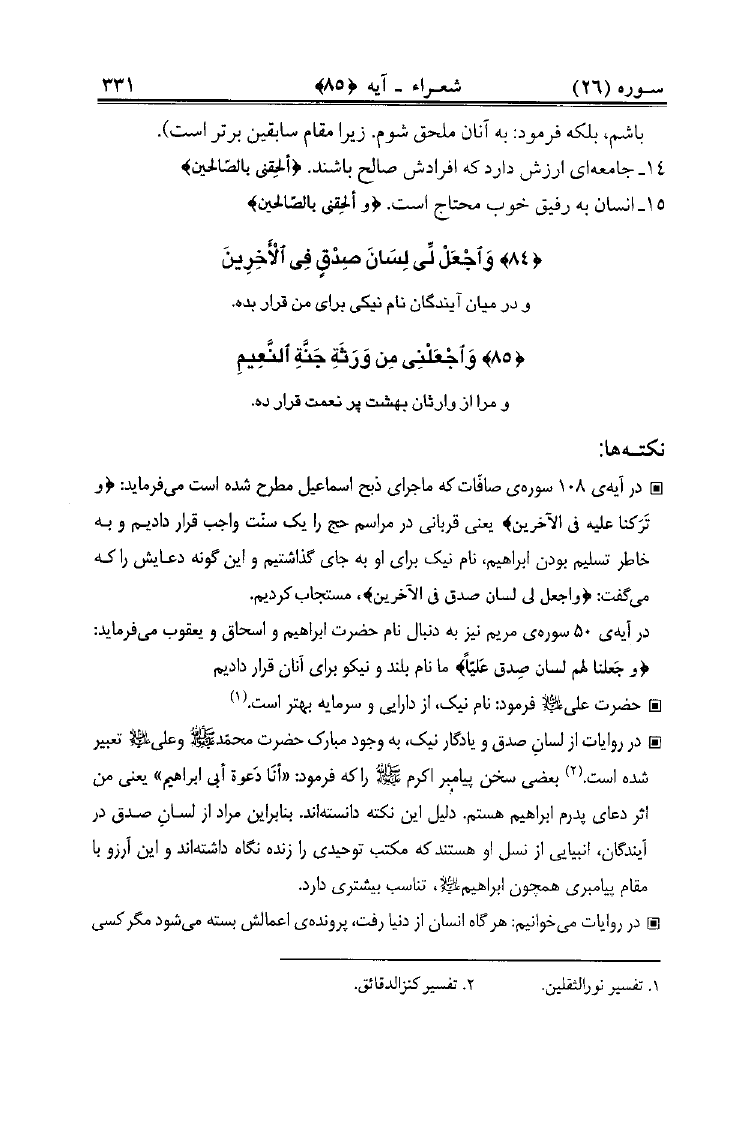 سوره (٢٦) شعراء - آیه ﴿٨٥﴾ ٣٣١
باشم، بلکه فرمود: به آنان ملحق شوم. زیرا مقام سابقین برتر است).
١٤ـ جامعه‌ای ارزش دارد که افرادش صالح باشند. ﴿ألحِقنی بالصّالحین﴾
١٥ـ انسان به رفیق خوب محتاج است. ﴿و ألحِقنی بالصّالحین﴾
﴿٨٤﴾ وَٱجْعَلْ لِّی لِسَانَ صِدْقٍ فِی ٱلْأَخِرِینَ
و در میان آیندگان نام نیکی برای من قرار بده.
﴿٨٥﴾ وَٱجْعَلْنِی مِن وَرَثَةِ جَنَّةِ ٱلنَّعِیمِ
و مرا از وارثان بهشت پر نعمت قرار ده.
نکته‌ها:
▣ در آیه‌ی ١٠٨ سوره‌ی صافّات که ماجرای ذبح اسماعیل مطرح شده است می‌فرماید: ﴿و
تَرَکنا علیه فی الآخرین﴾ یعنی قربانی در مراسم حج را یک سنّت واجب قرار دادیم و به
خاطر تسلیم بودن ابراهیم، نام نیک برای او به جای گذاشتیم و این گونه دعایش را که
می‌گفت: ﴿واجعل لی لسان صدق فی الآخرین﴾، مستجاب کردیم.
در آیه‌ی ٥٠ سوره‌ی مریم نیز به دنبال نام حضرت ابراهیم و اسحاق و یعقوب می‌فرماید:
﴿و جَعلنا لهم لسان صِدق عَلیّاً﴾ ما نام بلند و نیکو برای آنان قرار دادیم
▣ حضرت علی علیه‌السلام فرمود: نام نیک، از دارایی و سرمایه بهتر است.(١)
▣ در روایات از لسانِ صدق و یادگار نیک، به وجود مبارک حضرت محمّد ﷺ وعلی علیه‌السلام تعبیر
شده است.(٢) بعضی سخن پیامبر اکرم ﷺ را که فرمود: «أنَا دَعوة أبی ابراهیم» یعنی من
اثر دعای پدرم ابراهیم هستم. دلیل این نکته دانسته‌اند. بنابراین مراد از لسانِ صدق در
آیندگان، انبیایی از نسل او هستند که مکتب توحیدی را زنده نگاه داشته‌اند و این آرزو با
مقام پیامبری همچون ابراهیم علیه‌السلام، تناسب بیشتری دارد.
▣ در روایات می‌خوانیم: هر گاه انسان از دنیا رفت، پرونده‌ی اعمالش بسته می‌شود مگر کسی
١. تفسیر نورالثقلین. ٢. تفسیر کنزالدقائق.